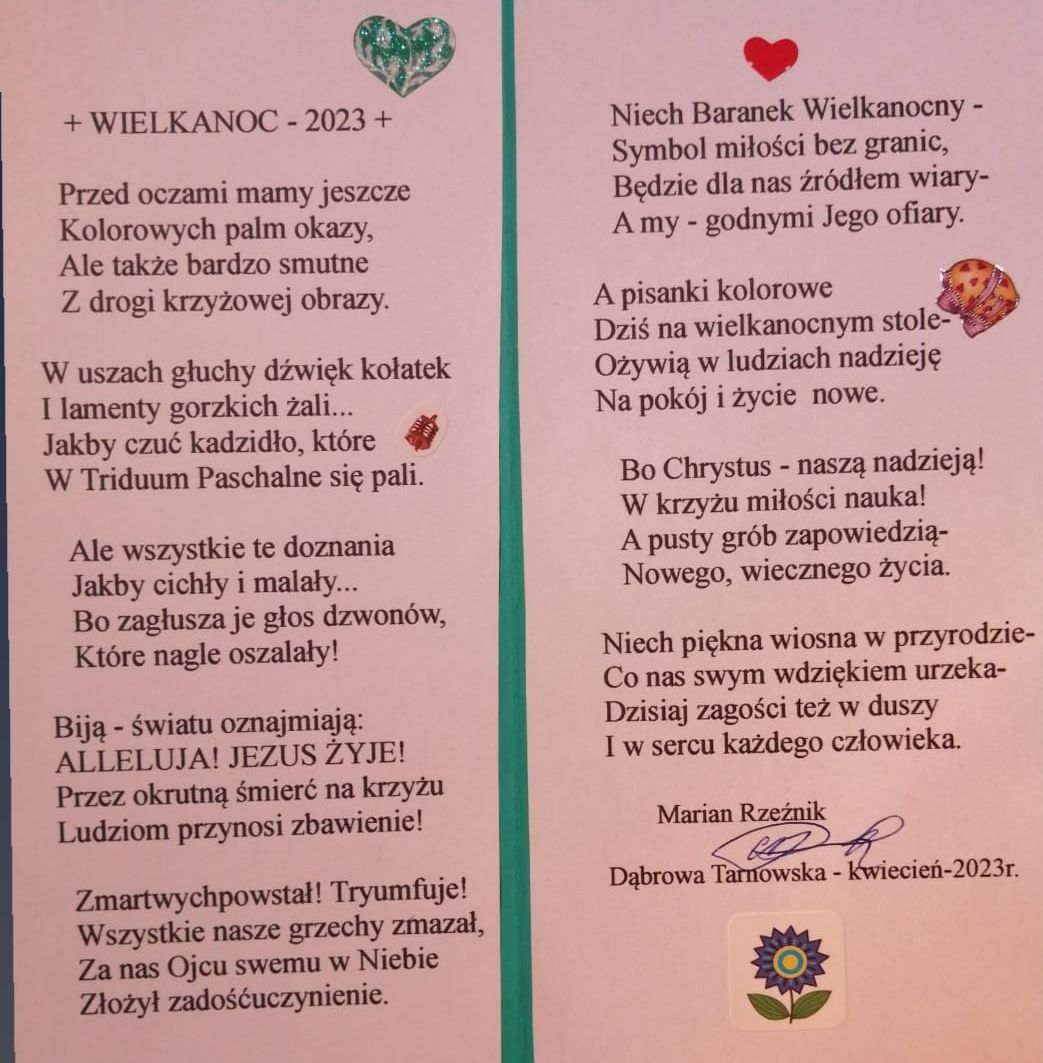 + WIELKANOC - 2023 +
Przed oczami mamy jeszcze
Kolorowych palm okazy,
Ale także bardzo smutne
Z drogi krzyżowej obrazy.
W uszach głuchy dźwięk kołatek
I lamenty gorzkich żali...
Jakby czuć kadzidło, które
W Triduum Paschalne się pali.
Ale wszystkie te doznania
Jakby cichły i malały...
Bo zagłusza je głos dzwonów,
Które nagle oszalały!
Biją - światu oznajmiają:
ALLELUJA! JEZUS ŻYJE!
Przez okrutną śmierć na krzyżu
Ludziom przynosi zbawienie!
Zmartwychpowstał! Tryumfuje!
Wszystkie nasze grzechy zmazał,
Za nas Ojcu swemu w Niebie
Złożył zadośćuczynienie.
Niech Baranek Wielkanocny -
Symbol miłości bez granic,
Będzie dla nas źródłem wiary-
A my - godnymi Jego ofiary.
A pisanki kolorowe
Dziś na wielkanocnym stole-
Ożywią w ludziach nadzieję
Na pokój i życie nowe.
Bo Chrystus - naszą nadzieją!
W krzyżu miłości nauka!
A pusty grób zapowiedzią-
Nowego, wiecznego życia.
Niech piękna wiosna w przyrodzie-
Co nas swym wdziękiem urzeka-
Dzisiaj zagości też w duszy
I w sercu każdego człowieka.
Marian Rzeźnik
Dąbrowa Tarnowska - kwiecień-2023r.